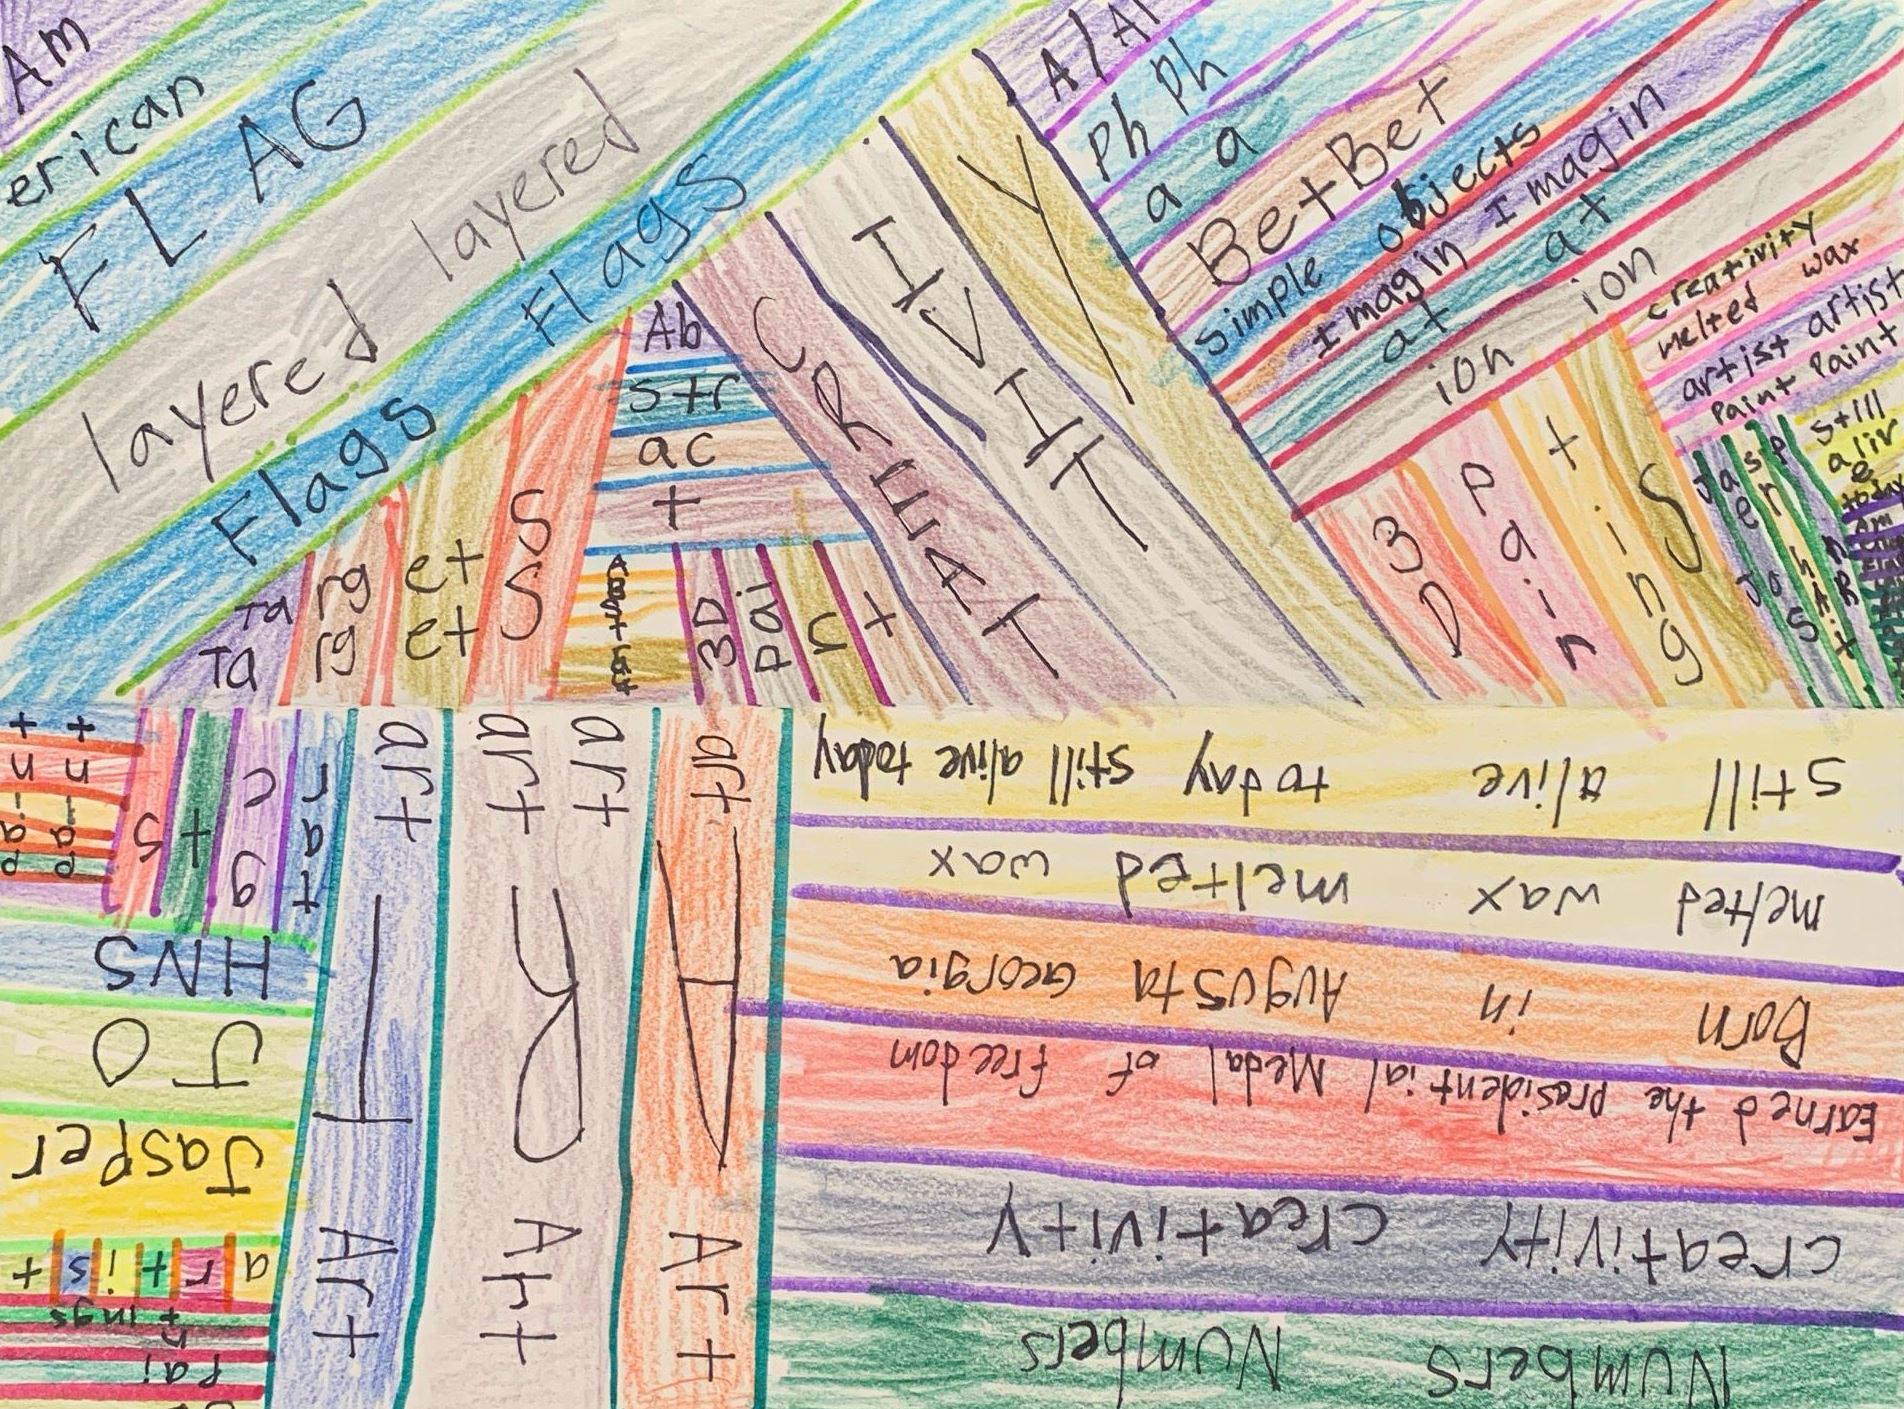 Am
erican
FLAG
layered layered
Flags Flags
Ta
Ta
rg
rg
et
et
S
S
Ab
str
ac
t
3D
pai
n
t
CRIEAT
IVIT
Y
A/Al
Ph Ph
a a
Bet Bet
simple objects
I magin I magin
at at
ion ion
3D
Pain
ting
S
creativity
melted wax
artist artist
Paint Paint
still
aliv
e
today
Jasper
Am
still alive today still alive today
melted wax melted wax
Born in Augusta Georgia
Earned the Presidential Medal of freedom
creativity creativity
Numbers Numbers
art
art art
art
A
R
T
Art
Art
Art
HNS
JO
Jasper
artist
Pai
n
tings